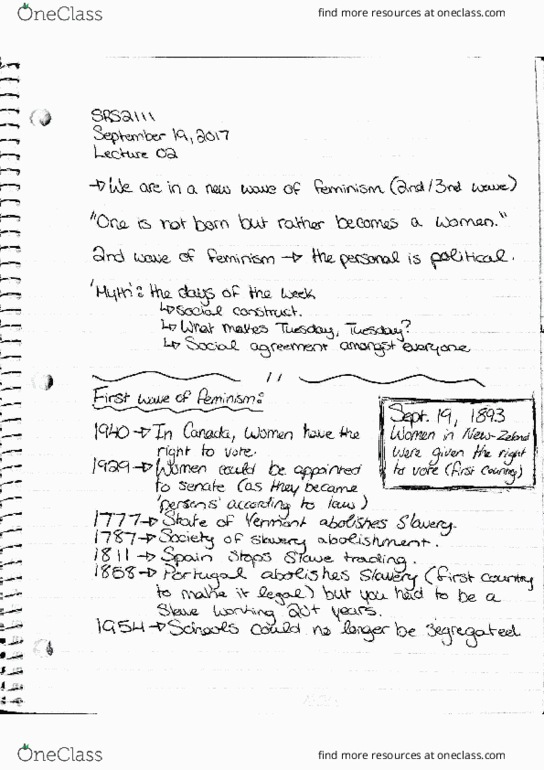 OneClass
find more resources at oneclass.com
SRS2111
September 19, 2017
Lecture 02
→ We are in a new wave of feminism (2nd/3nd wave)
"One is not born but rather becomes a women."
2nd wave of feminism → the personal is political.
'Myth': the days of the week
↳ social construct.
↳ What makes Tuesday, Tuesday?
↳ Social agreement amongst everyone
First wave of feminism:
Sept. 19, 1893
Women in New-Zeland
were given the right
to vote (first country)
1940 → In Canada, Women have the
right to vote.
1929 → Women could be appointed
to senate (as they became
'persons' according to law)
1777 → State of Vermont abolishes Slavery.
1787 → Society of slavery abolishment.
1811 → Spain stops Slave trading.
1858 → Portugal abolishes Slavery (first country
to make it legal) but you had to be a
Slave working 20+ years.
1954 → Schools could no longer be segregated
OneClass
find more resources at oneclass.com